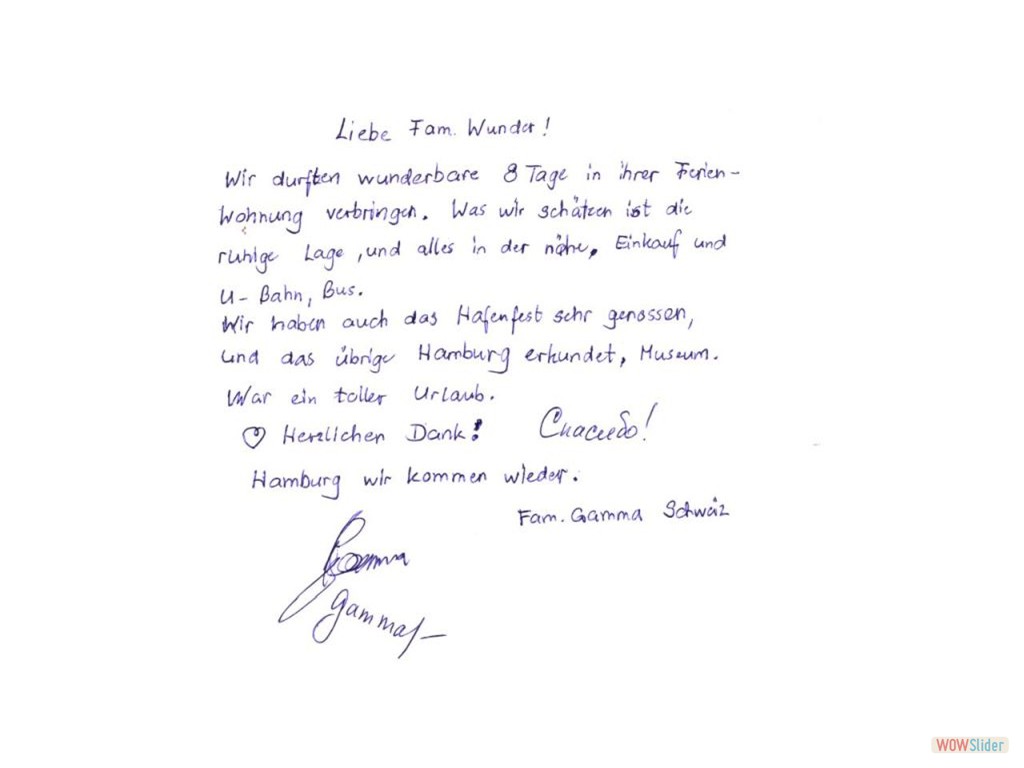 Liebe Fam. Wunder!
Wir durften wunderbare 8 Tage in ihrer Ferien-
Wohnung verbringen. Was wir schätzen ist die
ruhige Lage, und alles in der nähe, Einkauf und
U-Bahn, Bus.
Wir haben auch das Hafenfest sehr genossen,
und das übrige Hamburg erkundet, Museum.
War ein toller Urlaub.
♡ Herzlichen Dank! Спасибо!
Hamburg wir kommen wieder.
Fam. Gamma Schwäiz
Gamma
Gamma
WOWSlider